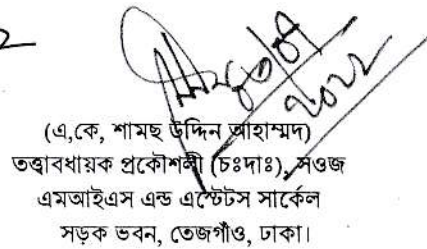 (এ,কে, শামছ উদ্দিন আহাম্মদ)
তত্ত্বাবধায়ক প্রকৌশলী (চঃদাঃ), সওজ
এমআইএস এন্ড এস্টেটস সার্কেল
সড়ক ভবন, তেজগাঁও, ঢাকা।